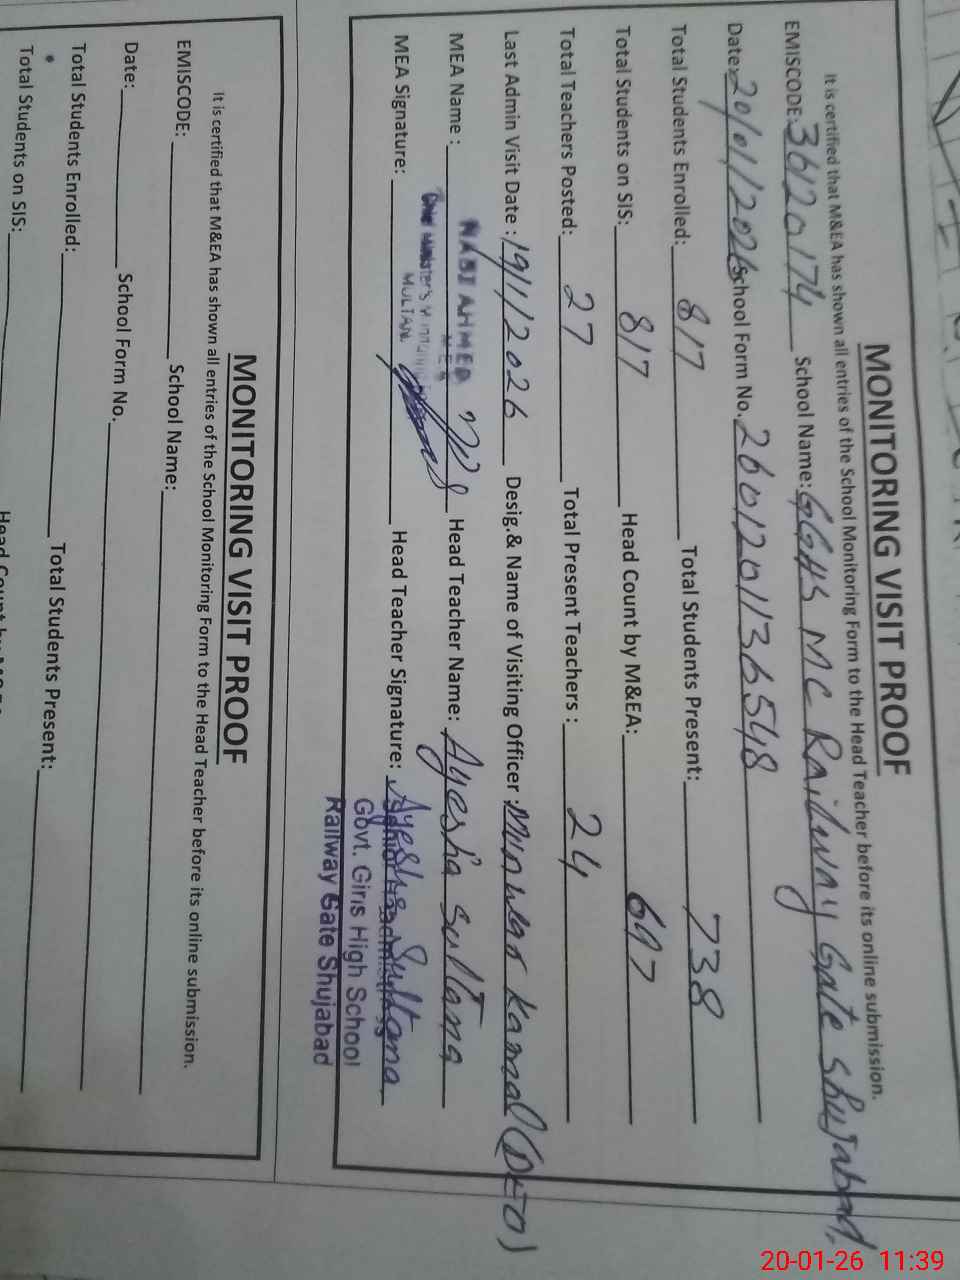 MONITORING VISIT PROOF
It is certified that M&EA has shown all entries of the School Monitoring Form to the Head Teacher before its online submission.
EMISCODE: 36120174 School Name: GGHS MC Railway Gate Shujabad.
Date: 20/01/2026 School Form No. 2601201136548
Total Students Enrolled: 817 Total Students Present: 738
Total Students on SIS: 817 Head Count by M&EA: 697
Total Teachers Posted: 27 Total Present Teachers : 24
Last Admin Visit Date : 19/1/2026 Desig.& Name of Visiting Officer : Munwar Kamal (DEO)
MEA Name : NABI AHMED Head Teacher Name: Ayesha Sultana
MEA
Chief Minister's
MULTAN
MEA Signature: Head Teacher Signature: Ayesha Sultana
Senior Headmistress
Govt. Girls High School
Railway Gate Shujabad
MONITORING VISIT PROOF
It is certified that M&EA has shown all entries of the School Monitoring Form to the Head Teacher before its online submission.
EMISCODE: School Name:
Date: School Form No.
Total Students Enrolled: Total Students Present:
Total Students on SIS:
20-01-26 11:39